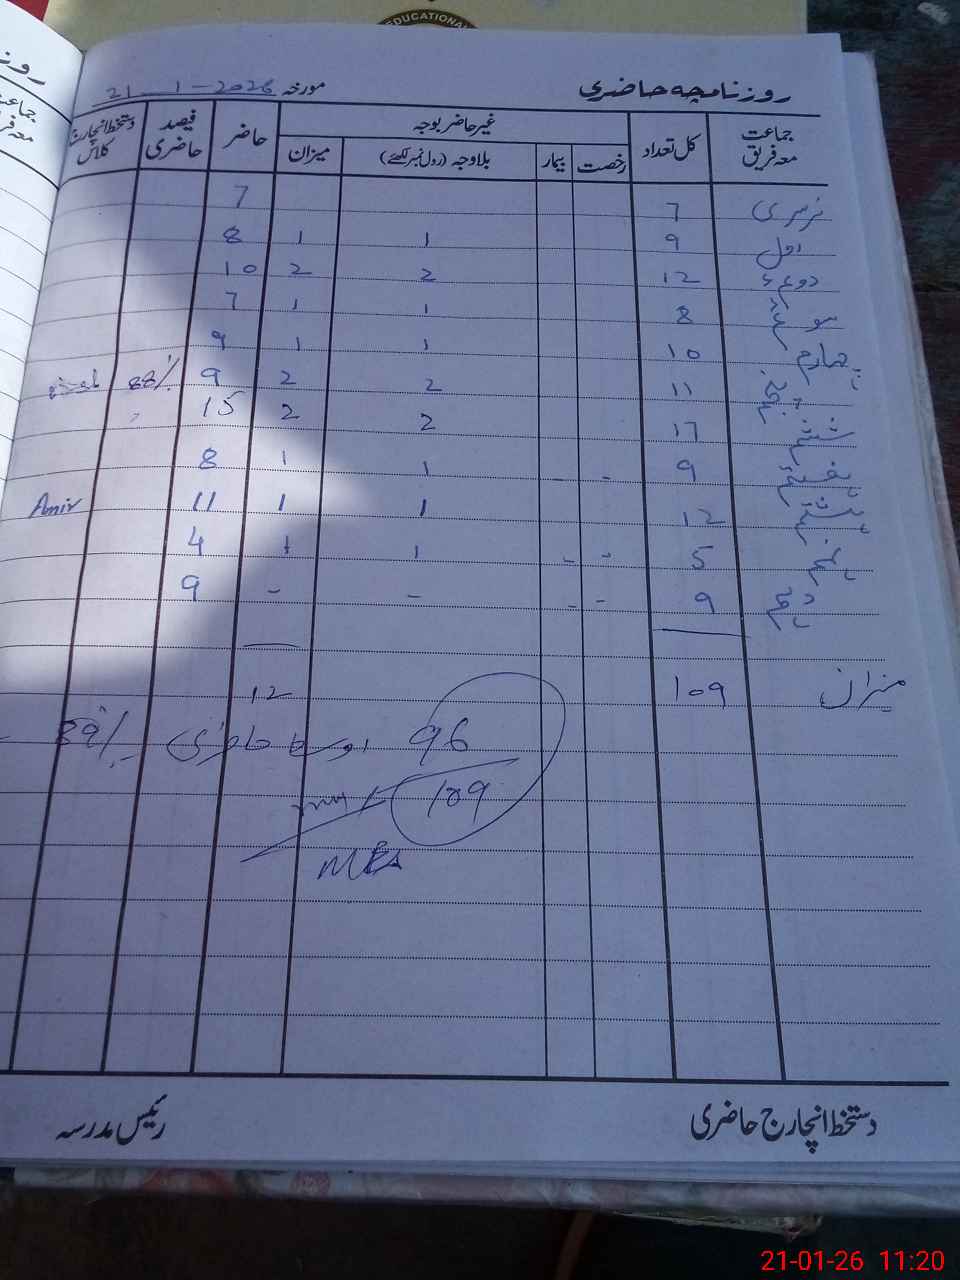 EDUCATIONAL
روزنامچہ حاضری مورخہ 21-1-2026
جماعت معہ فریق کل تعداد غیر حاضر بوجہ حاضر فیصد حاضری دستخط انچارج کلاس
رخصت بیمار بلاوجہ (رول نمبر لکھئے) میزان
نرسری 7 7
اول 9 1 1 8
دوئم 12 2 2 10
سوئم 8 1 1 7
چہارم 10 1 1 9
پنجم 11 2 2 9 88%
ششم 17 2 2 15
ہفتم 9 - - 1 1 8
ہشتم 12 1 1 11 Amir
نہم 5 - - 1 1 4
دہم 9 - - - - 9
میزان 109 12
96 اوسط حاضری 89%
109
دستخط انچارج حاضری رئیس مدرسہ
21-01-26 11:20